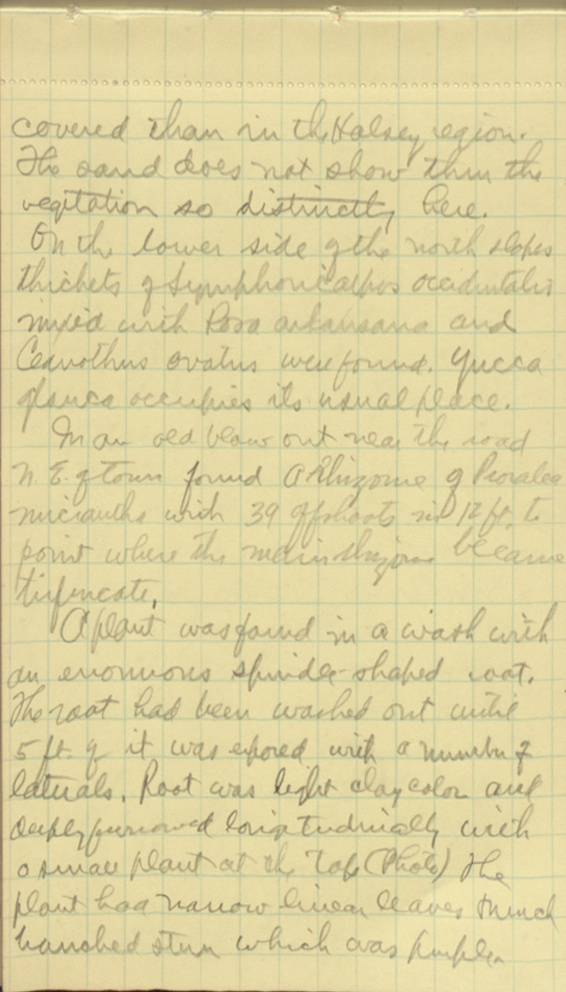 covered than in the Halsey region.
The sand does not show thru the
vegitation so distinctly here.
On the lower side of the north slopes
thickets of Symphoricarpos occidentalis
mixed with Rosa arkansana and
Ceanothus ovatus were found. Yucca
glauca occupies its usual place.
In an old blow out near the road
N.E. of town found a Rhizome of Psoralea
micrantha with 39 offshoots in 12 ft. to
point where the main rhizome became
trifurcate.
A plant was found in a wash with
an enormous spindle-shaped root.
The root had been washed out until
5 ft. of it was exposed with a number of
laterals. Root was light clay color and
deeply furrowed longitudinally with
a small plant at the top (Photo) The
plant had narrow linear leaves &
branched stem which was purple.